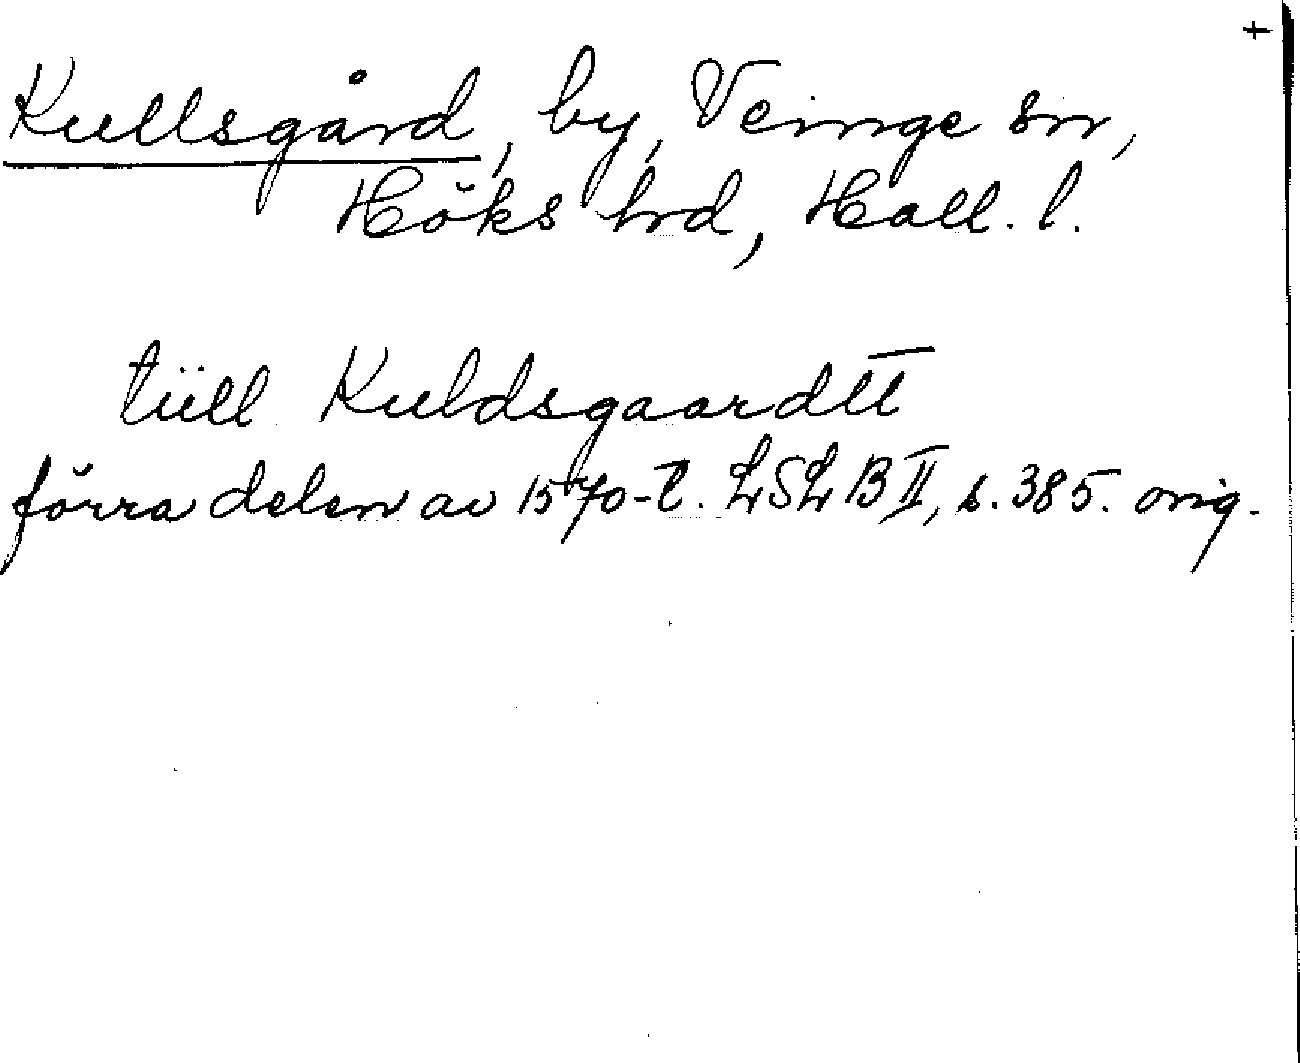 +
Kullsgård, by, Veinge sn,
Höks hrd, Hall. l.
tüll Kuldsgaardtt
förra delen av 1570-t. LSL B II, s. 385. orig.